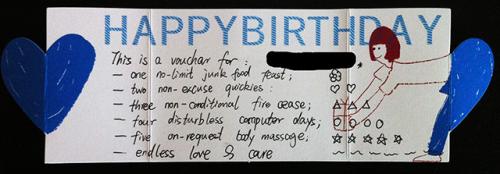 HAPPYBIRTHDAY
This is a vouchar for:
— one no-limit junk food feast;
— two non-excuse quickies:
— three non-conditional fire cease;
— four disturbless computer days;
— five on-request body massage;
— endless love & care